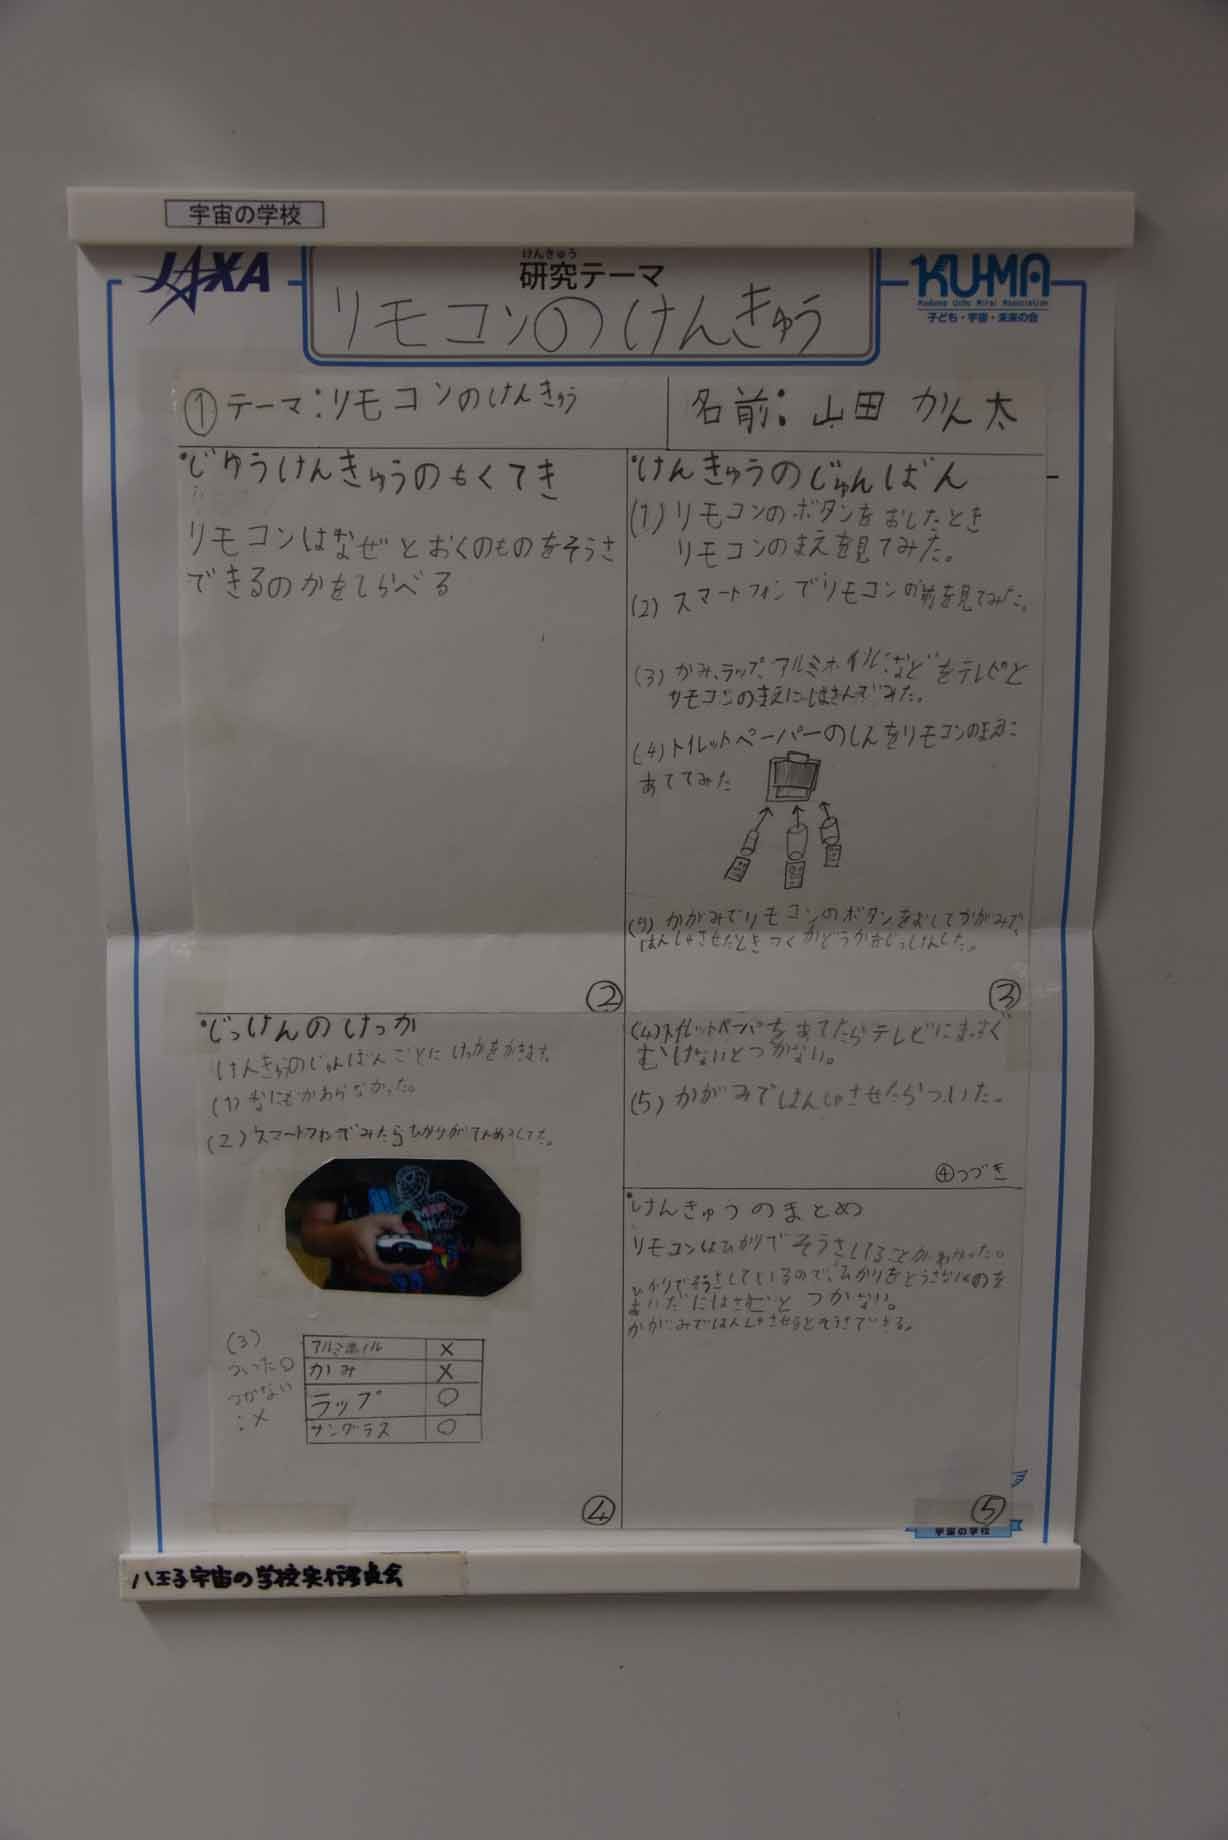 宇宙の学校
JAXA
けんきゅう
研究テーマ
リモコンのけんきゅう
KU-MA
Kodomo Uchu Mirai Association
子ども・宇宙・未来の会
①テーマ:リモコンのけんきゅう
名前:山田 かん太
・じゆうけんきゅうのもくてき
リモコンはなぜとおくのものをそうさ
できるのかをしらべる
②
・けんきゅうのじゅんばん
(1)リモコンのボタンをおしたとき
リモコンのまえを見てみた。
(2)スマートフォンでリモコンの前を見てみた。
(3)かみ、ラップ、アルミホイルなどをテレビと
リモコンのまえにはさんでみた。
(4)トイレットペーパーのしんをリモコンのまえに
あててみた
(5)かがみでリモコンのボタンをおしてかがみで
はんしゃさせたときつくかどうかをじっけんした。
③
・じっけんのけっか
けんきゅうのじゅんばんごとにけっかをかきます。
(1)なにもかわらなかった。
(2)スマートフォンでみたらひかりがてんめつしてた。
(3)
ついた○
つかない
:×
アルミホイル ×
かみ ×
ラップ ○
サングラス ○
④
(4)トイレットペーパをあてたらテレビにまっすぐ
むけないとつかない。
(5)かがみではんしゃさせたらついた。
④つづき
・けんきゅうのまとめ
リモコンはひかりでそうさしてることがわかった。
ひかりでそうさしているので、ひかりをとうさないものを
あいだにはさむとつかない。
かがみではんしゃさせるとそうさできる。
⑤
宇宙の学校
八王子宇宙の学校実行委員会